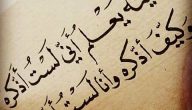 يعلم أني لست أذكره
وكيف أذكره وأنا لست